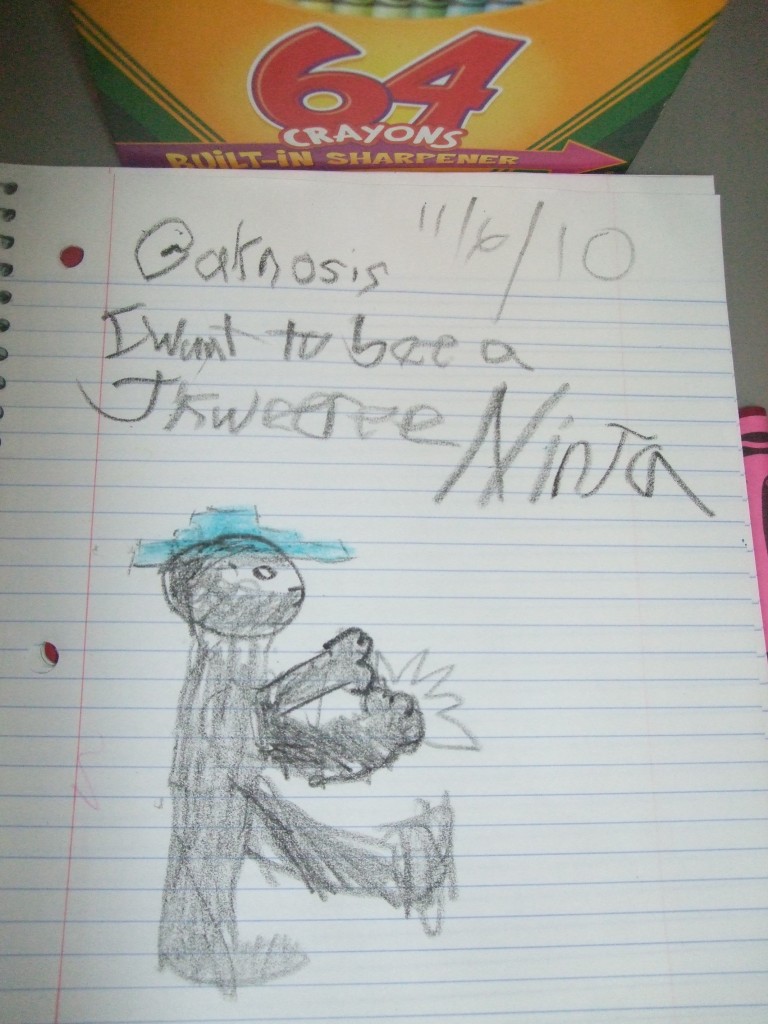 64
CRAYONS
BUILT-IN SHARPENER
Gatnosis 11/6/10
I want to bee a
Jkweeree Ninja